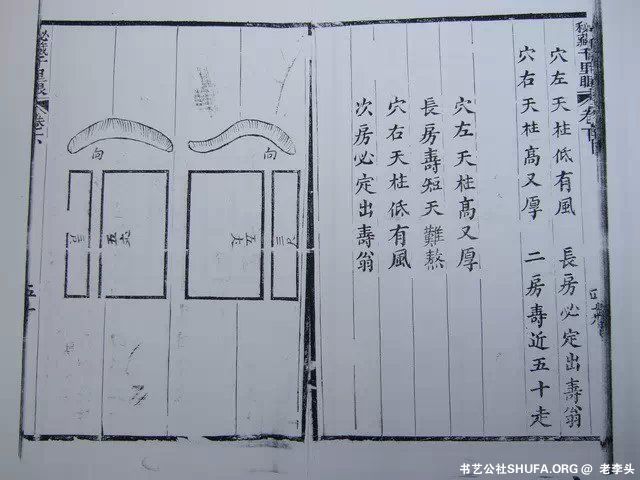 秘藏千里眼
穴左天柱低有風 長房必定出壽翁
穴右天柱髙又厚 二房壽近五十走
穴左天柱髙又厚
長房壽短天難熬
穴右天柱低有風
次房必定出壽翁
向
三尺
五尺
向
秘藏千里眼
书艺公社SHUFA.ORG @ 老李头